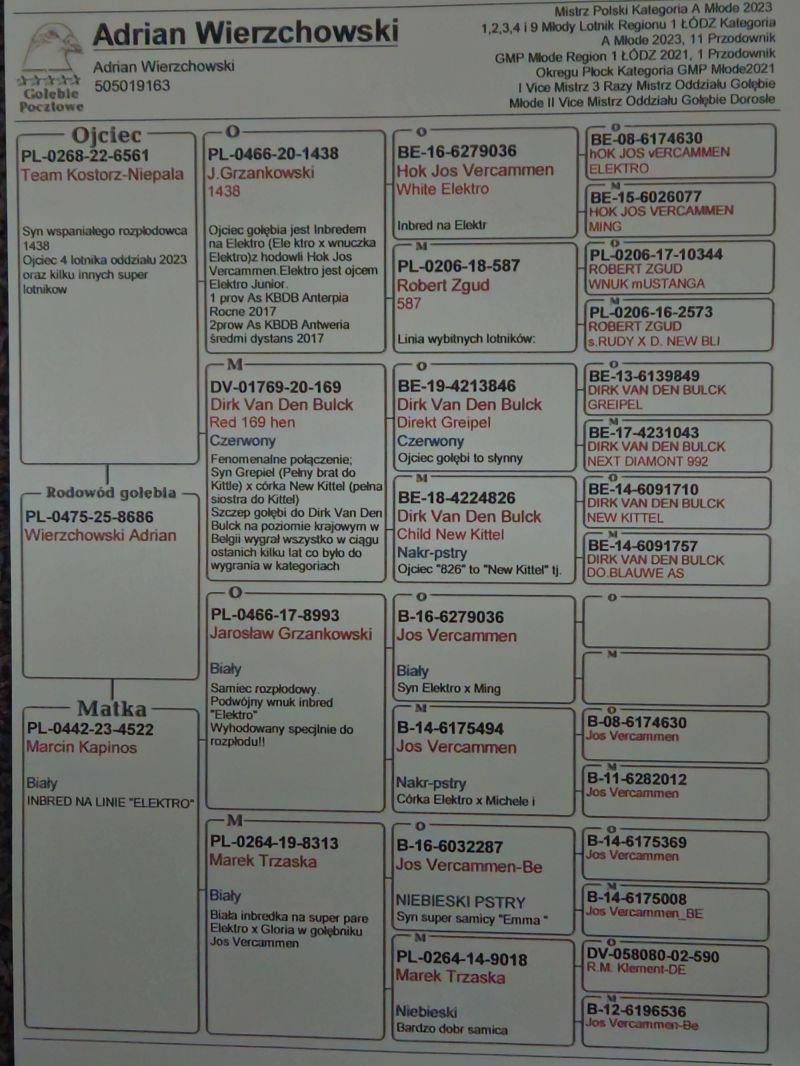 Adrian Wierzchowski
Adrian Wierzchowski
505019163
Gołębie
Pocztowe
Mistrz Polski Kategoria A Młode 2023
1,2,3,4 i 9 Młody Lotnik Regionu 1 ŁÓDZ Kategoria
A Młode 2023, 11 Przodownik
GMP Młode Region 1 ŁÓDZ 2021, 1 Przodownik
Okregu Płock Kategoria GMP Młode2021
I Vice Mistrz 3 Razy Mistrz Oddziału Gołębie
Młode II Vice Mistrz Oddziału Gołębie Dorosłe
Ojciec
PL-0268-22-6561
Team Kostorz-Niepala
Syn wspaniałego rozpłodowca
1438
Ojciec 4 lotnika oddziału 2023
oraz kilku innych super
lotnikow
Rodowód gołębia
PL-0475-25-8686
Wierzchowski Adrian
Matka
PL-0442-23-4522
Marcin Kapinos
Biały
INBRED NA LINIE "ELEKTRO"
O
PL-0466-20-1438
J.Grzankowski
1438
Ojciec gołębia jest Inbredem
na Elektro (Ele ktro x wnuczka
Elektro)z hodowli Hok Jos
Vercammen.Elektro jest ojcem
Elektro Junior.
1 prov As KBDB Anterpia
Rocne 2017
2prow As KBDB Antweria
średmi dystans 2017
M
DV-01769-20-169
Dirk Van Den Bulck
Red 169 hen
Czerwony
Fenomenalne połączenie;
Syn Grepiel (Pełny brat do
Kittle) x córka New Kittel (pełna
siostra do Kittel)
Szczep gołębi do Dirk Van Den
Bulck na poziomie krajowym w
Belgii wygrał wszystko w ciągu
ostanich kilku lat co było do
wygrania w kategoriach
O
PL-0466-17-8993
Jarosław Grzankowski
Biały
Samiec rozpłodowy.
Podwójny wnuk inbred
"Elektro"
Wyhodowany specjlnie do
rozpłodu!!
M
PL-0264-19-8313
Marek Trzaska
Biały
Biała inbredka na super pare
Elektro x Gloria w gołębniku
Jos Vercammen
O
BE-16-6279036
Hok Jos Vercammen
White Elektro
Inbred na Elektr
M
PL-0206-18-587
Robert Zgud
587
Linia wybitnych lotników:
O
BE-19-4213846
Dirk Van Den Bulck
Direkt Greipel
Czerwony
Ojciec gołębi to słynny
M
BE-18-4224826
Dirk Van Den Bulck
Child New Kittel
Nakr-pstry
Ojciec "826" to "New Kittel" tj.
O
B-16-6279036
Jos Vercammen
Biały
Syn Elektro x Ming
M
B-14-6175494
Jos Vercammen
Nakr-pstry
Córka Elektro x Michele i
O
B-16-6032287
Jos Vercammen-Be
NIEBIESKI PSTRY
Syn super samicy "Emma "
M
PL-0264-14-9018
Marek Trzaska
Niebieski
Bardzo dobr samica
O
BE-08-6174630
hOK JOS vERCAMMEN
ELEKTRO
M
BE-15-6026077
HOK JOS VERCAMMEN
MING
O
PL-0206-17-10344
ROBERT ZGUD
WNUK mUSTANGA
M
PL-0206-16-2573
ROBERT ZGUD
s.RUDY X D. NEW BLI
O
BE-13-6139849
DIRK VAN DEN BULCK
GREIPEL
M
BE-17-4231043
DIRK VAN DEN BULCK
NEXT DIAMONT 992
O
BE-14-6091710
DIRK VAN DEN BULCK
NEW KITTEL
M
BE-14-6091757
DIRK VAN DEN BULCK
DO.BLAUWE AS
O
M
O
B-08-6174630
Jos Vercammen
M
B-11-6282012
Jos Vercammen
O
B-14-6175369
Jos Vercammen
M
B-14-6175008
Jos Vercammen_BE
O
DV-058080-02-590
R.M. Klement-DE
M
B-12-6196536
Jos Vercammen-Be